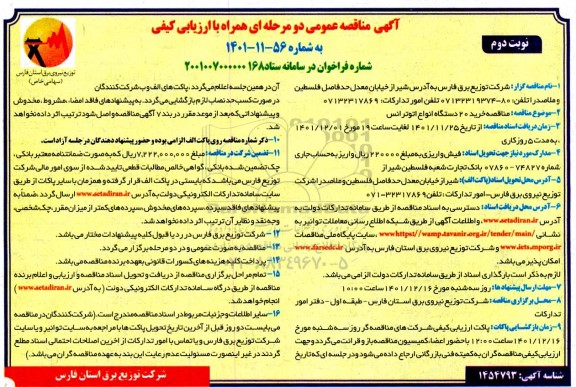 آگهی مناقصه عمومی دو مرحله ای همراه با ارزیابی کیفی
به شماره ۵۶-۱۱-۱۴۰۱
شماره فراخوان در سامانه ستاد ۲۰۰۱۰۰۷۰۰۰۰۰۰۱۶۸
نوبت دوم
توزیع نیروی برق استان فارس
(سهامی خاص)
۱- نام مناقصه گزار: شرکت توزیع برق فارس به آدرس شیراز خیابان معدل حدفاصل فلسطین
و ملاصدرا تلفن: ۸۰-۰۷۱۳۲۳۱۹۳۷۴ تلفن امور تدارکات: ۰۷۱۳۲۳۱۷۸۶۹
۲- موضوع مناقصه: مناقصه خرید ۲۰ دستگاه انواع اتوترانس
۳- زمان دریافت اسناد مناقصه: از تاریخ ۱۴۰۱/۱۱/۲۵ لغایت ساعت ۱۹ مورخ ۱۴۰۱/۱۲/۰۱
به مدت ۵ روز کاری
۴- مدارک مورد نیاز جهت تحویل اسناد: فیش واریزی به مبلغ ۲۲۰۰۰۰ ریال واریز به حساب جاری
شماره ۷۴۸۲۷-۰۷۸۶ بانک تجارت شعبه فلسطین شیراز
۵- آدرس محل تحویل اسناد (پاکت الف): شیراز خیابان معدل حدفاصل فلسطین و ملاصدرا شرکت
توزیع نیروی برق فارس - امور تدارکات (تلفن: ۳۲۳۱۷۸۶۹-۰۷۱)
۶- آدرس محل دریافت اسناد: دسترسی به اسناد مناقصه از طریق سامانه تدارکات دولت به
آدرس www.setadiran.ir و اطلاعات آگهی از طریق شبکه اطلاع رسانی معاملات توانیر به
نشانی https://wamp.tavanir.org.ir/tender/main/ ، سایت پایگاه ملی مناقصات
www.iets.mporg.ir و شرکت توزیع نیروی برق استان فارس به آدرس www.farsedc.ir
امکان پذیر می باشد.
لازم به ذکر است بارگذاری اسناد از طریق سامانه تدارکات دولت الزامی می باشد.
۷- مهلت ارسال پیشنهاد ها: روز سه شنبه مورخ ۱۴۰۱/۱۲/۱۶ ساعت ۱۰:۰۰
۸- محل برگزاری مناقصه: شرکت توزیع نیروی برق استان فارس - طبقه اول - دفتر امور
تدارکات
۹- زمان بازگشایی پاکات: پاکت ارزیابی کیفی شرکت های مناقصه گر روز سه شنبه مورخ
۱۴۰۱/۱۲/۱۶ ساعت ۱۲:۰۰ با حضور اعضا، کمیسیون مناقصه باز و قرائت می گردد و جهت
ارزیابی کیفی مناقصه گران به کمیته فنی بازرگانی ارجاع داده می شود و در جلسه ای که تاریخ
آن در همین جلسه اعلام می گردد، پاکت های الف و ب شرکت کنندگان
در صورت کسب حد نصاب لازم بازگشایی می گردد. به پیشنهادهای فاقد امضا، مشروط، مخدوش
و پیشنهاداتی که بعد از موعد مقرر در بند ۷ آگهی مناقصه واصل شود ترتیب اثر داده نخواهد
شد.
۱۰- ذکر شماره مناقصه روی پاکت الف الزامی بوده و حضور پیشنهاد دهندگان در جلسه آزاد است.
۱۱- تضمین شرکت در مناقصه: مبلغ ۷,۲۲۲,۰۰۰,۰۰۰ ریال که به صورت ضمانتنامه معتبر بانکی،
چک تضمین شده بانکی، گواهی خالص مطالبات قطعی تایید شده از سوی امور مالی شرکت
توزیع فارس می باشد که بایستی در پاکت الف قرار گرفته و همزمان با سایر پاکات از طریق
سایت سامانه تدارکات الکترونیکی دولت به آدرس www.setadiran.ir ارسال گردد. ضمناً به
پیشنهادهای فاقد سپرده، سپرده های مخدوش، سپرده های کمتر از میزان مقرر، چک شخصی،
وجه نقد و نظایر آن ترتیب اثر داده نخواهد شد.
۱۲- شرکت توزیع برق فارس در رد یا قبول کلیه پیشنهادات مختار می باشد.
۱۳- مناقصه به صورت عمومی و در دو مرحله برگزار می گردد.
۱۴- پرداخت کلیه هزینه های کسورات قانونی بعهده برنده مناقصه می باشد.
۱۵- تمام مراحل برگزاری مناقصه از دریافت و تحویل اسناد مناقصه و ارزیابی و اعلام برنده
مناقصه از طریق درگاه سامانه تدارکات الکترونیکی دولت ( به آدرس www.setadiran.ir )
انجام خواهد شد.
۱۶- سایر اطلاعات و جزئیات مربوطه در اسناد مناقصه مندرج است. (شرکت کنندگان در مناقصه
می بایست دو روز قبل از آخرین تاریخ تحویل پاکت ها با مراجعه به سایت توانیر و یا سایت
شرکت توزیع برق فارس و یا تماس با امور تدارکات از آخرین اصلاحات احتمالی اسناد مطلع
گردند در غیر اینصورت مسئولیت عدم رعایت این بند به عهده مناقصه گران می باشد.)
شناسه آگهی: ۱۴۵۴۷۹۳
شرکت توزیع برق استان فارس